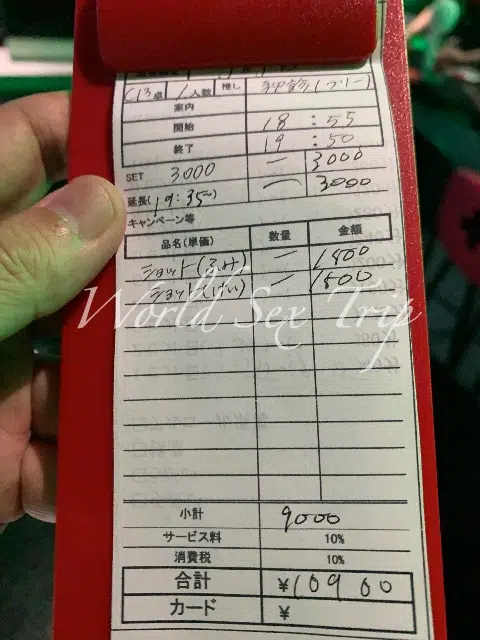 C13 卓 1 人数 推し
案内
開始 18:55
終了 19:50
SET 3000 一 3000
延長(19:35〜) 一 3000
キャンペーン等
品名(単価) 数量 金額
ショット(ふみ) 一 1500
ショット(けい) 一 1500
World Sex Trip
小計 9000
サービス料 10%
消費税 10%
合計 ¥10900
カード ¥